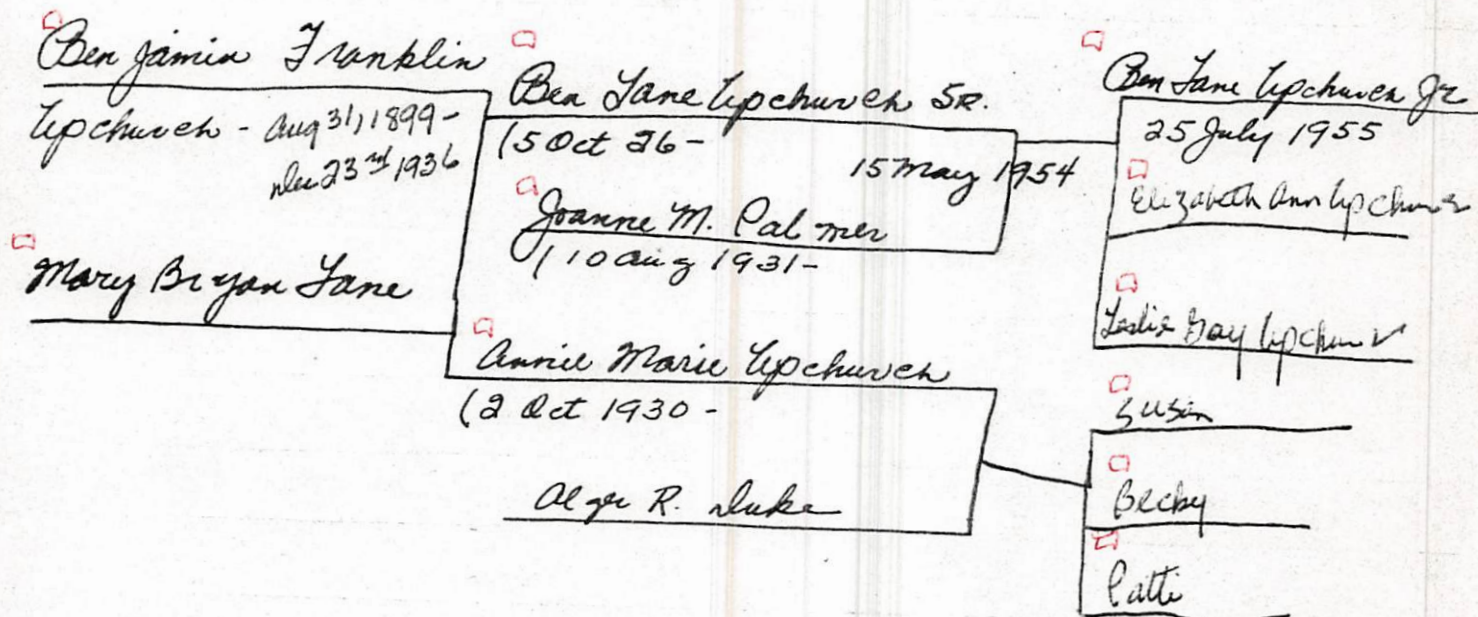 Benjamin Franklin
Upchurch - Aug 31, 1899-
Dec 23rd 1936
Mary Bryan Lane
Ben Lane Upchurch SR.
(5 Oct 26-
15 May 1954
Joanne M. Palmer
(10 Aug 1931-
Annie Marie Upchurch
(2 Oct 1930 -
Alger R. Duke
Ben Lane Upchurch Jr
25 July 1955
Elizabeth Ann Upchurch
Leslie Gay Upchurch
Susan
Becky
Patti